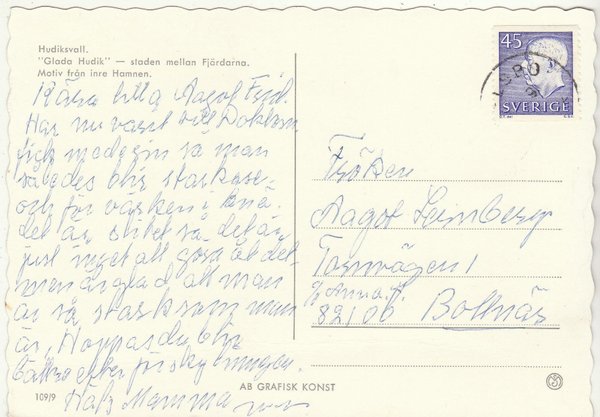 Hudiksvall.
"Glada Hudik" — staden mellan Fjördarna.
Motiv från inre Hamnen.
Kära lilla Aagot
Har nu varit till Doktorn
fick medecin så man
således blir starkare
och för värken i knä.
det är slitet så det är
just inget att göra åt det
men är glad att man
är så stark som man
är, Hoppas du blir
bättre efter
Mamma
109/9
AB GRAFISK KONST
45
SVERIGE
Fröken
Aagot Leinberg
Tornvägen 1
c/o Anna
82100 Bollnäs